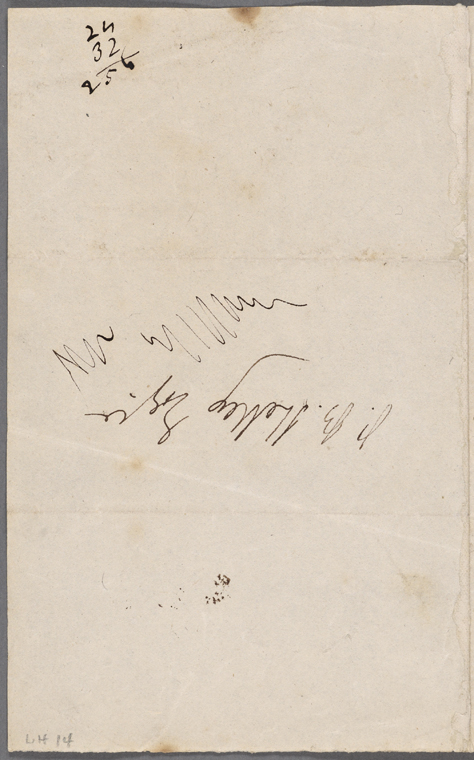 24
32
256
P. B. Shelley Esqre
LH 14